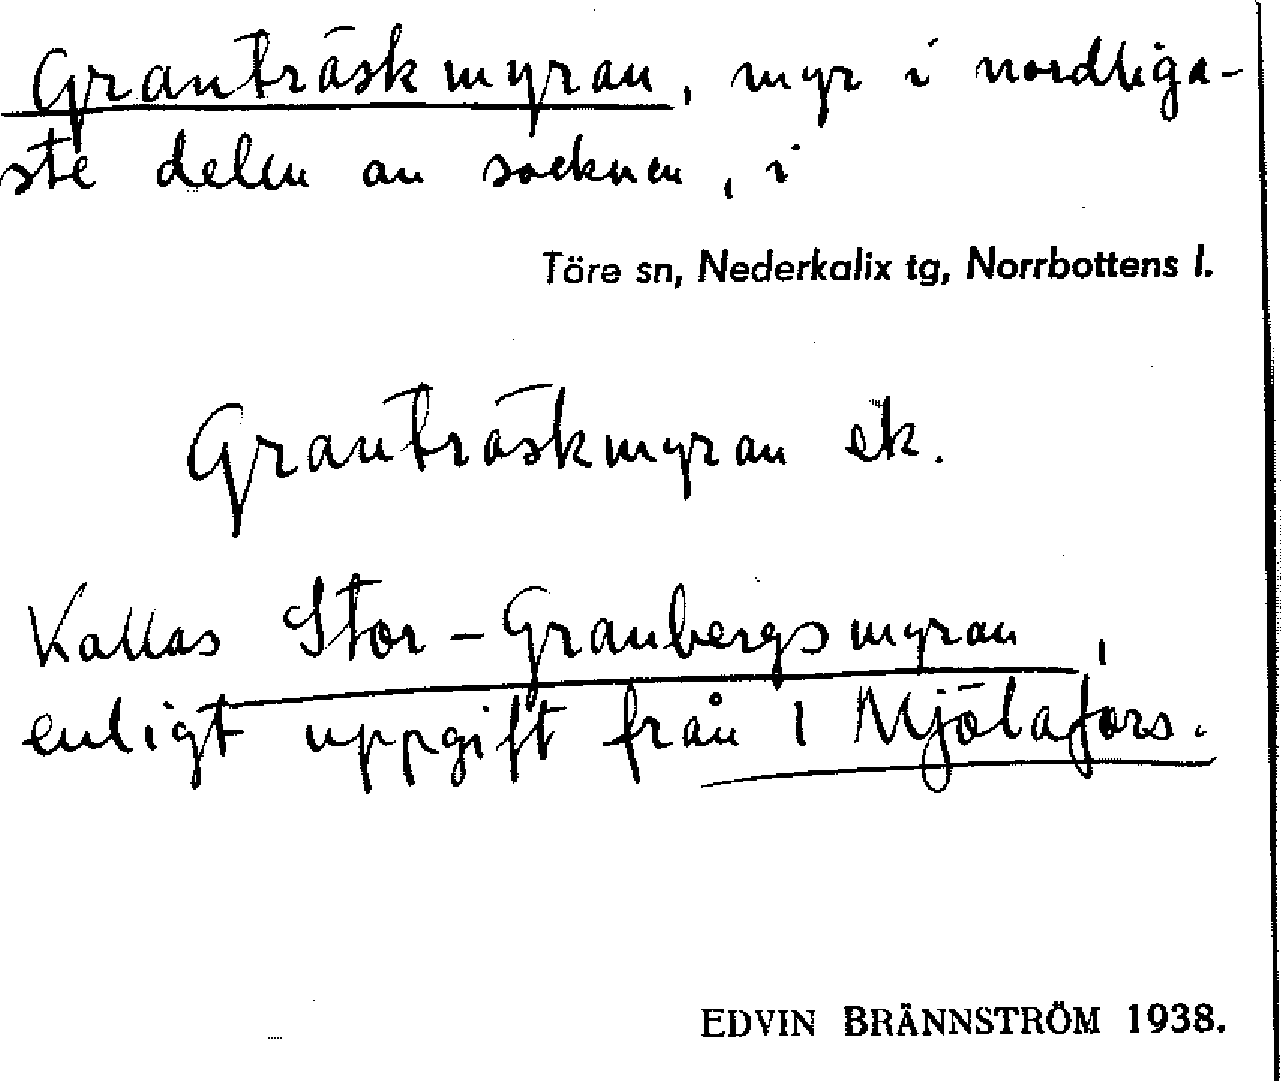 Granträskmyran, myr i nordliga-
ste delen av socknen, i
Töre sn, Nederkalix tg, Norrbottens l.
Granträskmyran ek.
Kallas Stor-Granbergsmyran,
enligt uppgift från 1 Mjölafors.
EDVIN BRÄNNSTRÖM 1938.